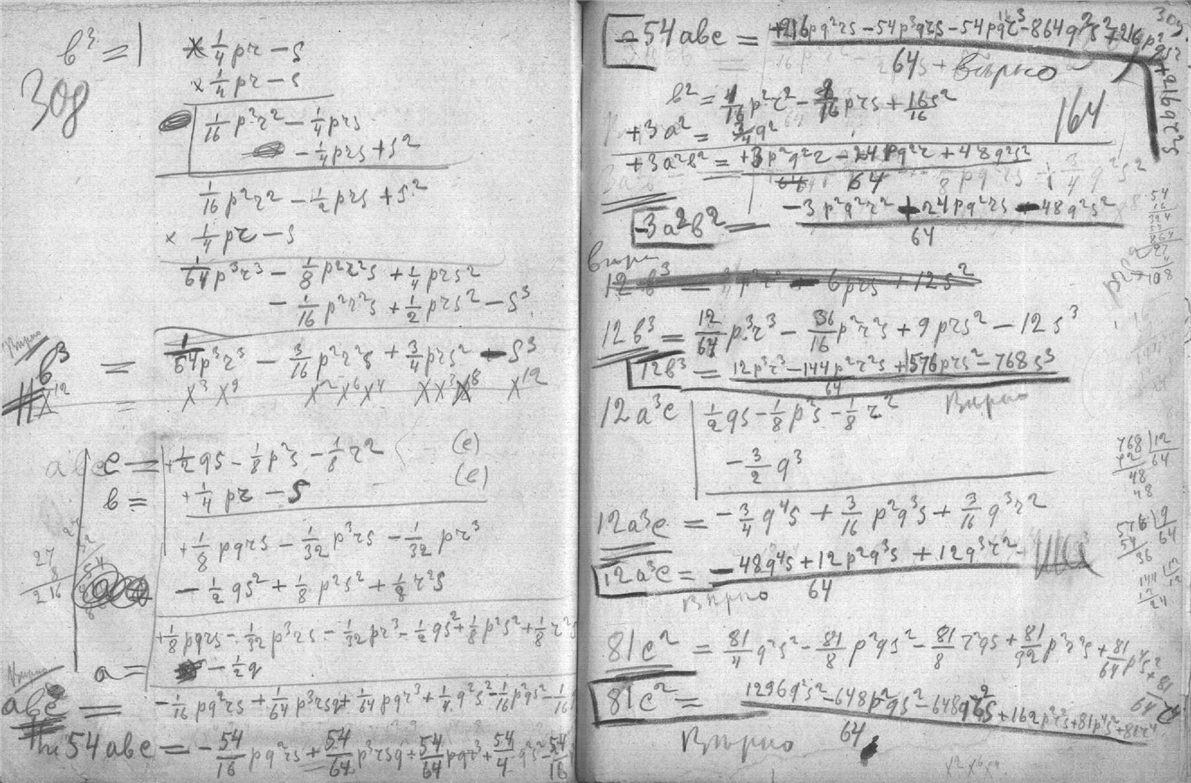 b³ = | × ¼pr − s
308
× ¼pr − s
1/16 p²r² − ¼prs
− ¼prs + s²
1/16 p²r² − ½prs + s²
× ¼pr − s
1/64 p³r³ − 1/8 p²r²s + ¼prs²
− 1/16 p²r²s + ½prs² − s³
Вѣрно
b³ = 1/64 p³r³ − 3/16 p²r²s + ¾prs² − s³
c = + ½qs − 1/8 p²s − 1/8 r² (c)
b = + ¼pr − s (c)
+ 1/8 pqrs − 1/32 p³rs − 1/32 pr³
− ½qs² + 1/8 p²s² + 1/8 r²s
+ 1/8 pqrs − 1/32 p³rs − 1/32 pr³ − ½qs² + 1/8 p²s² + 1/8 r²s
a = − ½q
Вѣрно
abc = − 1/16 pq²rs + 1/64 p³rsq + 1/64 pqr³ + ¼q²s² − 1/16 p²qs² − 1/16
54abc = − 54/16 pq²rs + 54/64 p³rsq + 54/64 pqr³ + 54/4 q²s² − 54/16
309
−54abc = +216pq²rs − 54p³qrs − 54pqr³ − 864q²s² + 216p²qs² + 216qr²s
64
Вѣрно
b² = 1/16 p²r² − 8/16 prs + 16/16 s²
164
+3a² = ¾q²
+3a²b² = +3p²q²r − 24pq²r + 48q²s²
64
−3a²b² = −3p²q²r² + 24pq²rs − 48q²s²
64
12b³ = 12/64 p³r³ − 36/16 p²r²s + 9prs² − 12s³
12b³ = 12p³r³ − 144p²r²s + 576prs² − 768s³
64
Вѣрно
12a³c | ½qs − 1/8 p²s − 1/8 r²
− 3/2 q³
12a³c = − ¾q⁴s + 3/16 p²q³s + 3/16 q³r²
12a³c = − 48q⁴s + 12p²q³s + 12q³r²
64
Вѣрно
81c² = 81/4 q²s² − 81/8 p²qs² − 81/8 r²qs + 81/32 p²r²s + 81/64 p⁴s² + 81/64 r⁴
81c² = 1296q²s² − 648p²qs² − 648qr²s + 162p²r²s + 81p⁴s² + 81r⁴
64
Вѣрно